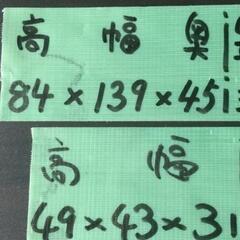 高 幅 奥
84×139×45
高 幅
49×43×31